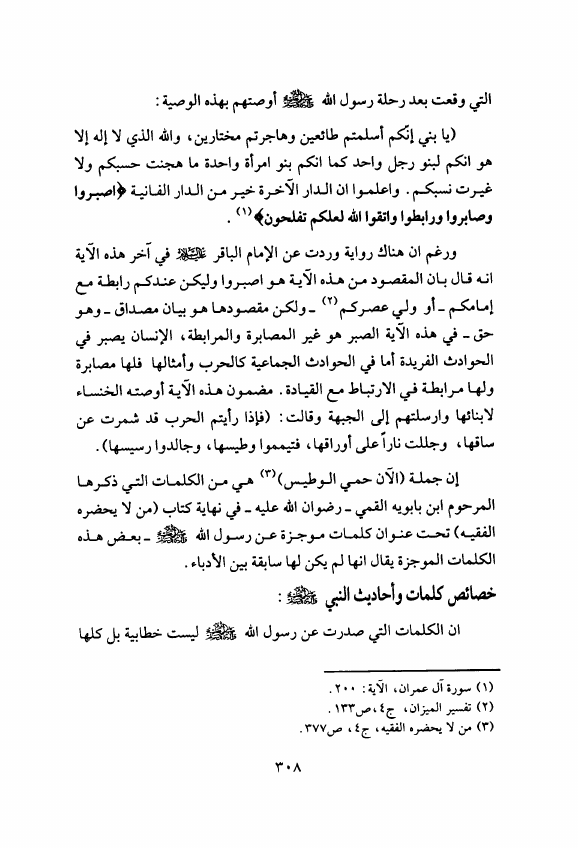 التي وقعت بعد رحلة رسول الله ﷺ أوصتهم بهذه الوصية :
(يا بني إنّكم أسلمتم طائعين وهاجرتم مختارين، والله الذي لا إله إلا
هو انكم لبنو رجل واحد كما انكم بنو امرأة واحدة ما هجنت حسبكم ولا
غيرت نسبكم. واعلموا ان الدار الآخرة خير من الدار الفانية ﴿اصبروا
وصابروا ورابطوا واتقوا الله لعلكم تفلحون﴾(١) .
ورغم ان هناك رواية وردت عن الإمام الباقر في آخر هذه الآية
انه قال بان المقصود من هذه الآية هو اصبروا وليكن عندكم رابطة مع
إمامكم ـ أو ولي عصركم(٢) ـ ولكن مقصودها هو بيان مصداق ـ وهو
حق ـ في هذه الآية الصبر هو غير المصابرة والمرابطة، الإنسان يصبر في
الحوادث الفريدة أما في الحوادث الجماعية كالحرب وأمثالها فلها مصابرة
ولها مرابطة في الارتباط مع القيادة. مضمون هذه الآية أوصته الخنساء
لابنائها وارسلتهم إلى الجبهة وقالت: (فإذا رأيتم الحرب قد شمرت عن
ساقها، وجللت ناراً على أوراقها، فتيمموا وطيسها، وجالدوا رسيسها).
إن جملة (الآن حمي الوطيس)(٣) هي من الكلمات التي ذكرها
المرحوم ابن بابويه القمي ـ رضوان الله عليه ـ في نهاية كتاب (من لا يحضره
الفقيه) تحت عنوان كلمات موجزة عن رسول الله ﷺ ـ بعض هذه
الكلمات الموجزة يقال انها لم يكن لها سابقة بين الأدباء.
خصائص كلمات وأحاديث النبي ﷺ :
ان الكلمات التي صدرت عن رسول الله ﷺ ليست خطابية بل كلها
(١) سورة آل عمران، الآية: ٢٠٠.
(٢) تفسير الميزان، ج٤،ص١٣٣.
(٣) من لا يحضره الفقيه، ج٤، ص٣٧٧.
٣٠٨